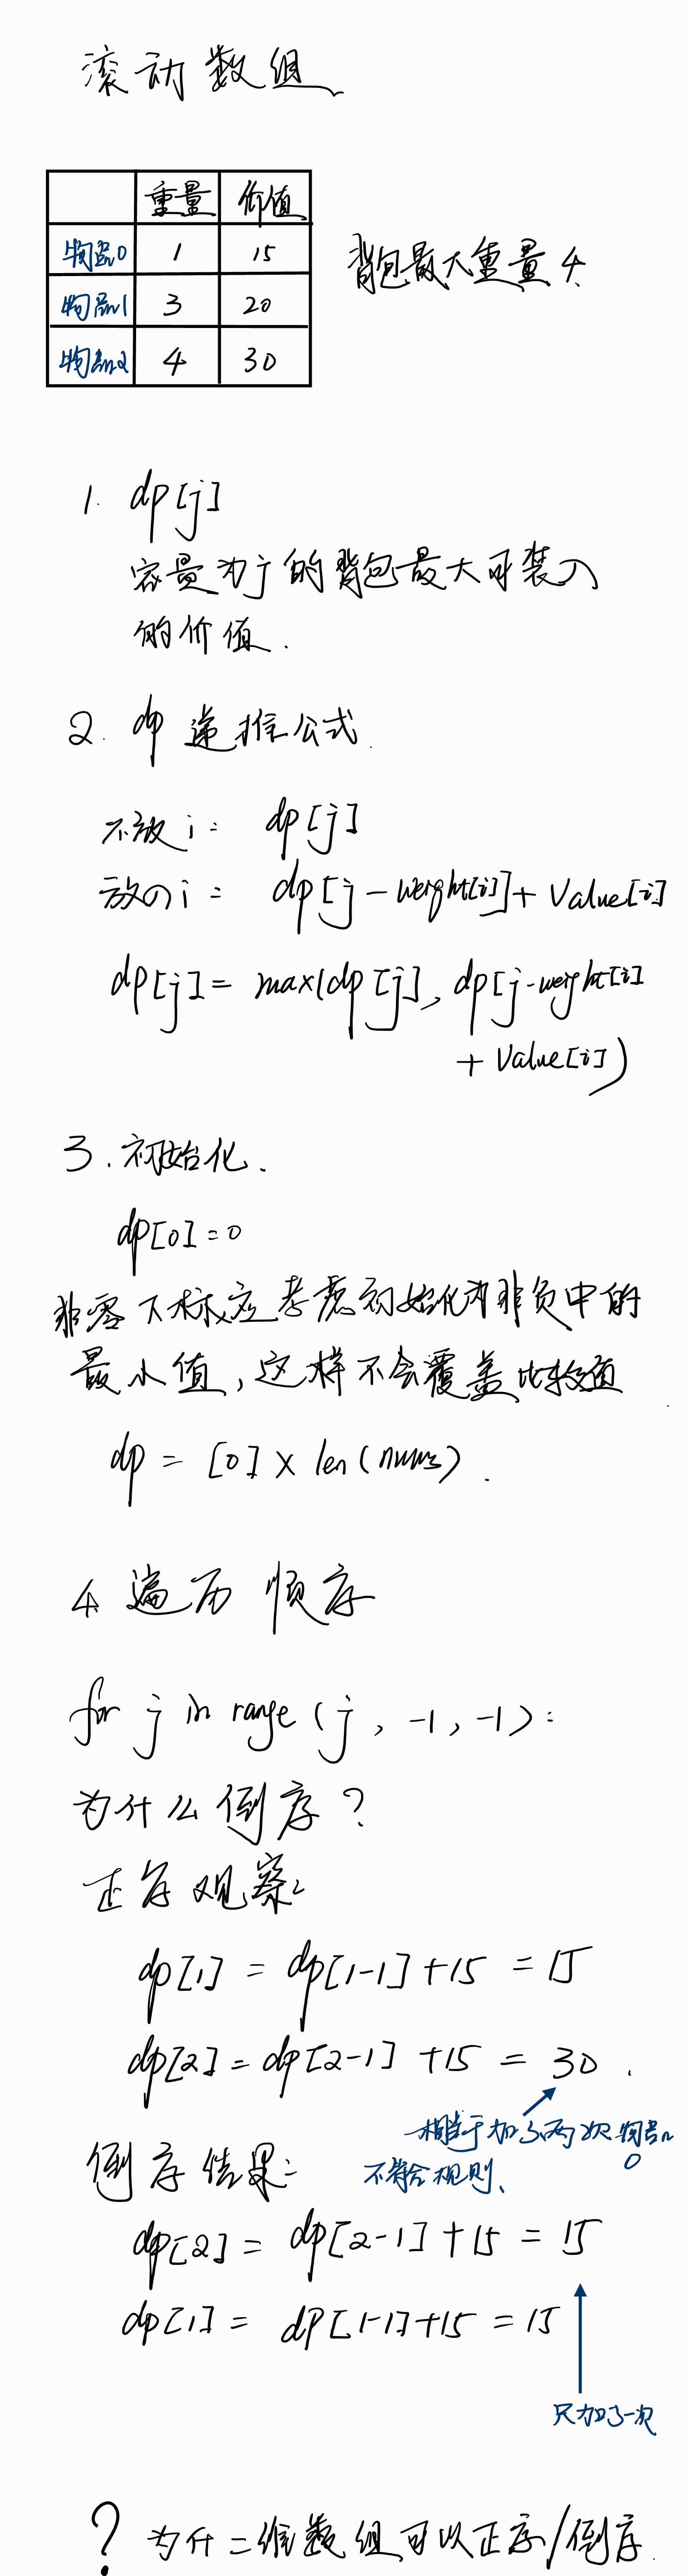 滚动数组
重量 价值
物品0 1 15
物品1 3 20
物品2 4 30
背包最大重量 4
1. dp[j]
容量为j的背包最大可装入
的价值.
2. dp 递推公式.
不放i: dp[j]
放入i: dp[j-weight[i]]+Value[i]
dp[j]=max(dp[j], dp[j-weight[i]
+Value[i])
3.初始化.
dp[0]=0
非零下标应考虑初始化为非负中的
最小值,这样不会覆盖比较值
dp = [0] × len(nums).
4 遍历顺序
for j in range(j, -1, -1):
为什么倒序?
正序观察:
dp[1] = dp[1-1]+15 = 15
dp[2] = dp[2-1] +15 = 30.
相当于加了两次物品
0
不符合规则、
倒序结果:
dp[2] = dp[2-1]+15 = 15
dp[1] = dp[1-1]+15 = 15
只加了一次
? 为什二维数组可以正序/倒序.